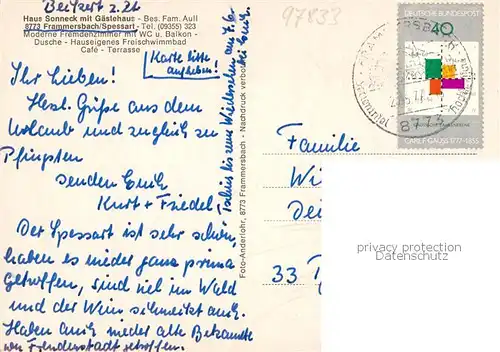 97833
Haus Sonneck mit Gästehaus - Bes. Fam. Aull
8773 Frammersbach/Spessart - Tel. (09355) 323
Moderne Fremdenzimmer mit WC u. Balkon -
Dusche - Hauseigenes Freischwimmbad
Café - Terrasse
(Karte bitte
aufheben!)
Ihr Lieben!
Herzl. Grüße aus dem
Urlaub und zugleich zu
Pfingsten
senden Euch
Kurt + Friedel
Der Spessart ist sehr schön,
haben es wieder ganz prima
getroffen, sind viel im Wald
und der Wein schmeckt auch.
Haben auch wieder alte Bekannte
von Freudenstadt getroffen.
Tschüs bis zum Wiedersehen
bei Euch.
Foto-Anderlohr, 8773 Frammersbach - Nachdruck verboten
DEUTSCHE BUNDESPOST
40
CARL F. GAUSS 1777-1855
8773
Familie
Wi
33
privacy protection
watermark